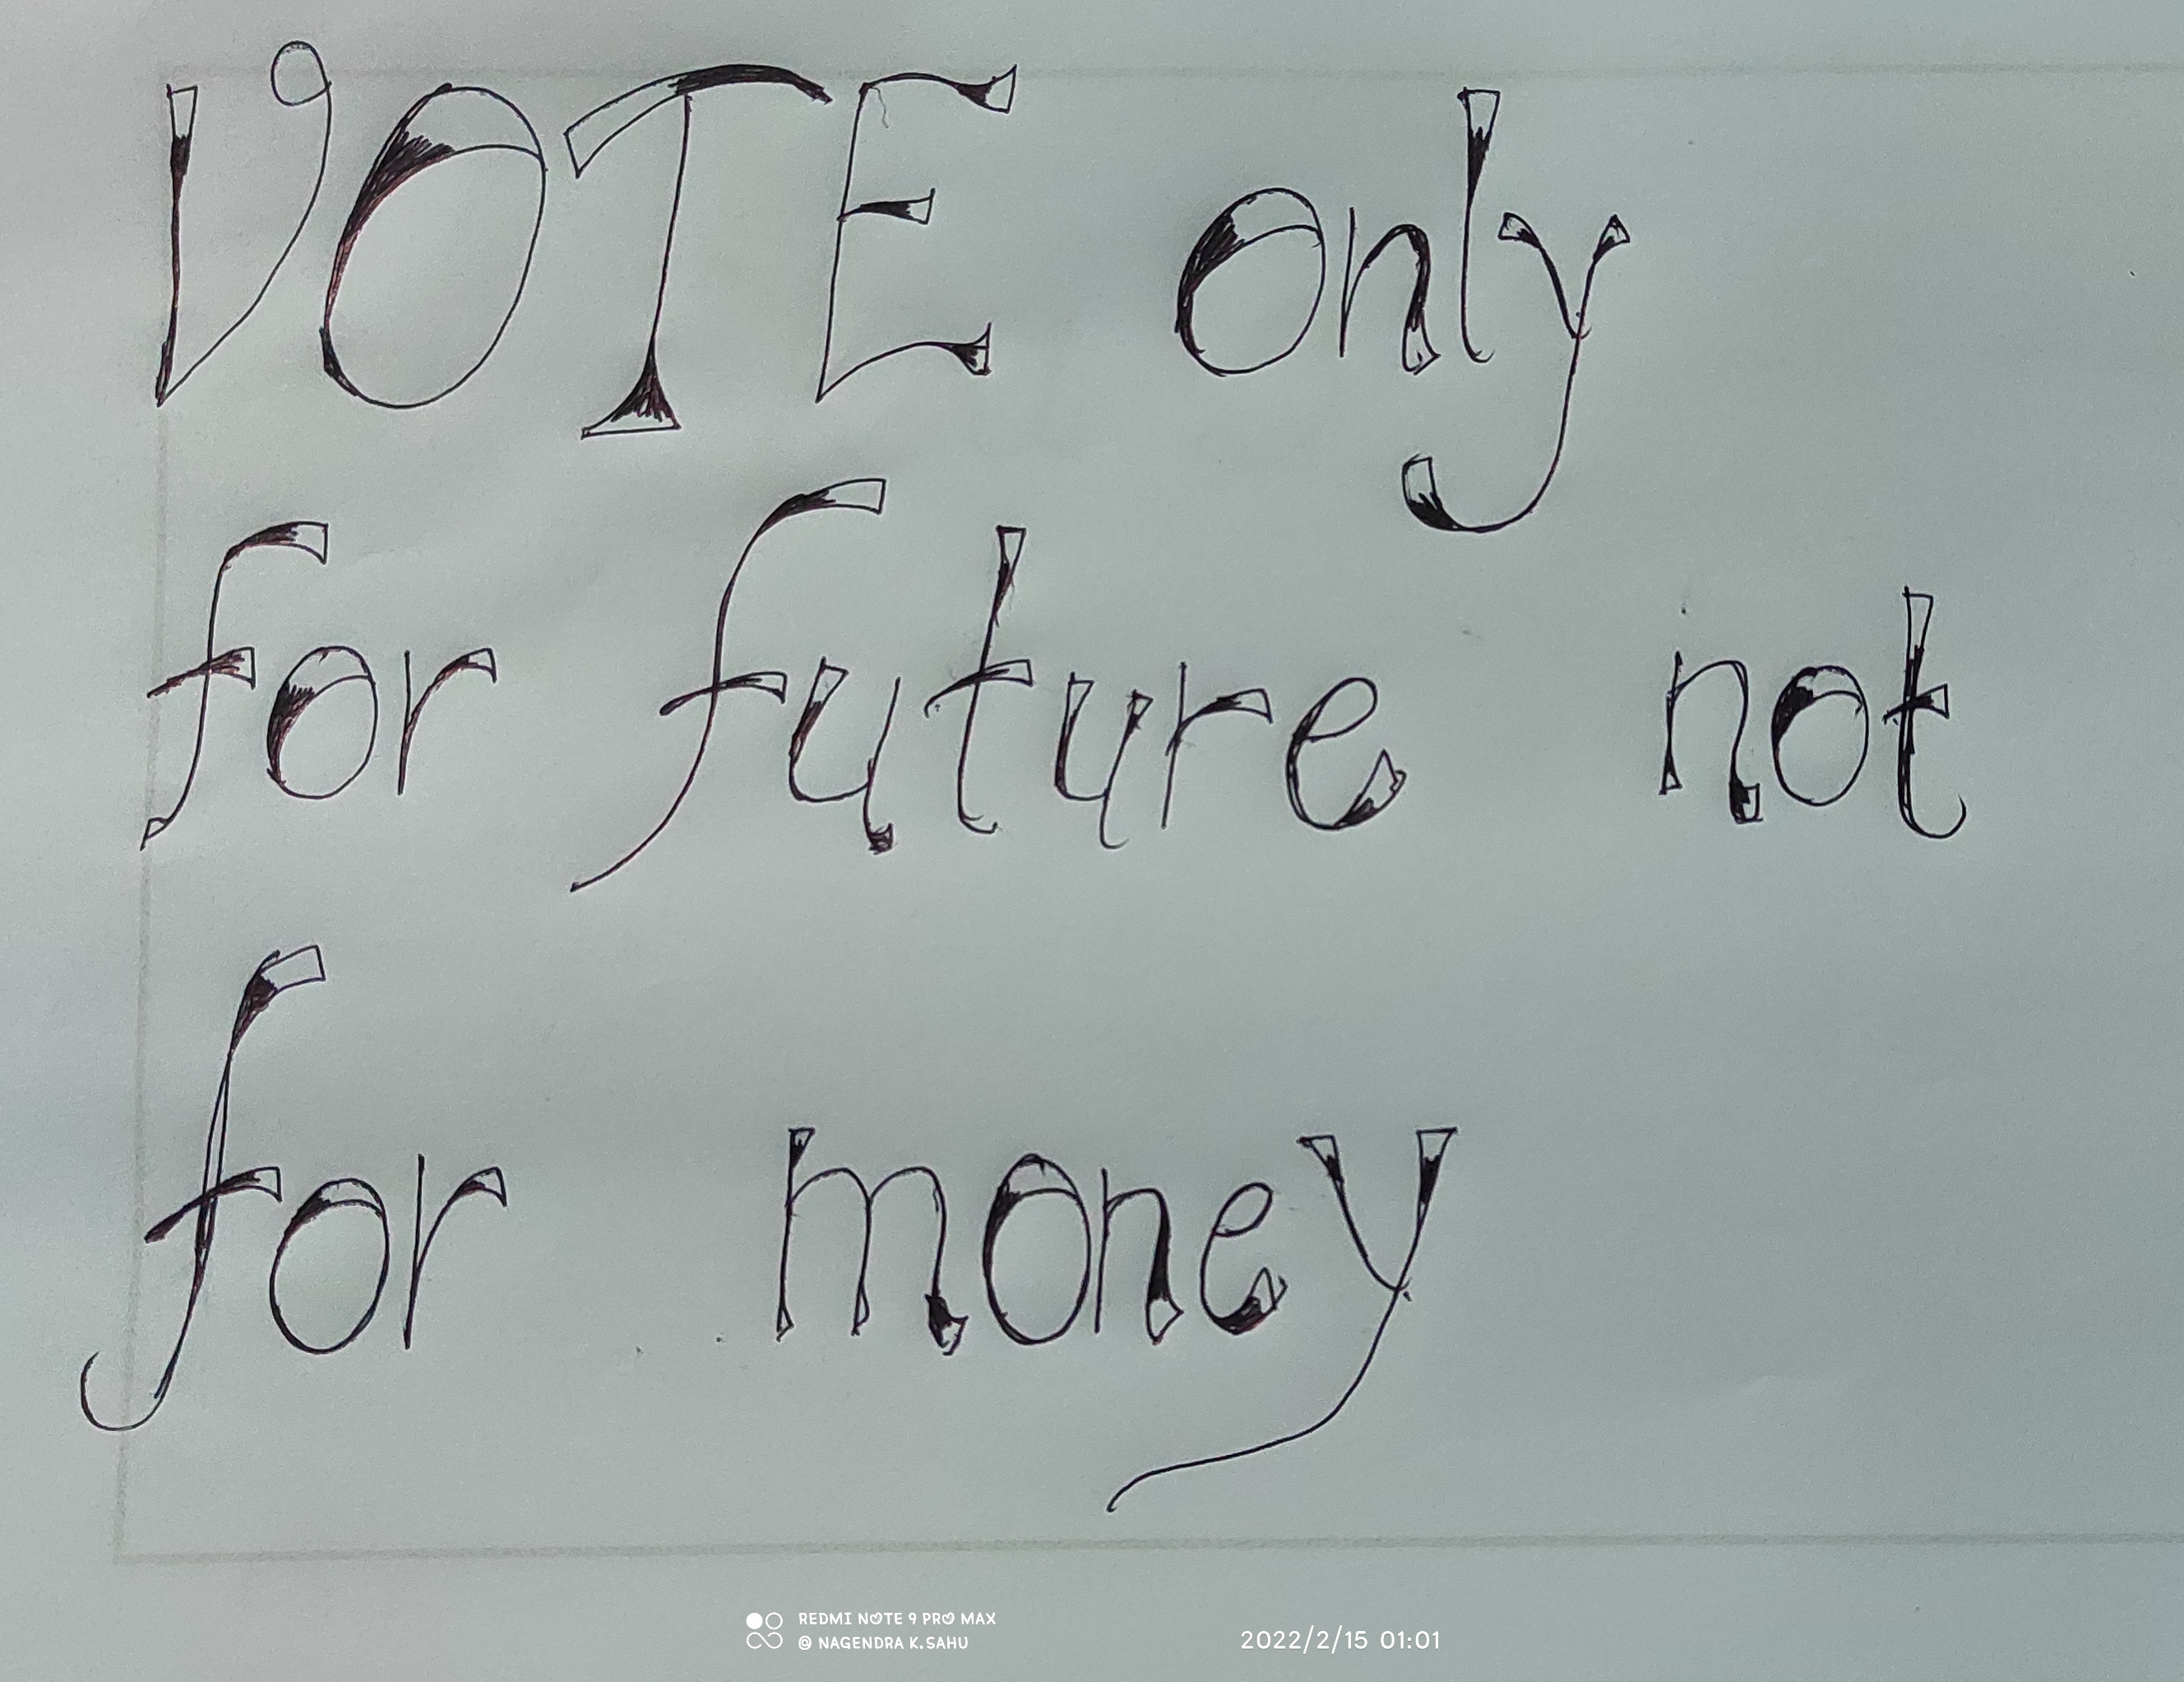 VOTE only
for future not
for money
REDMI NOTE 9 PRO MAX
@ NAGENDRA K.SAHU
2022/2/15 01:01